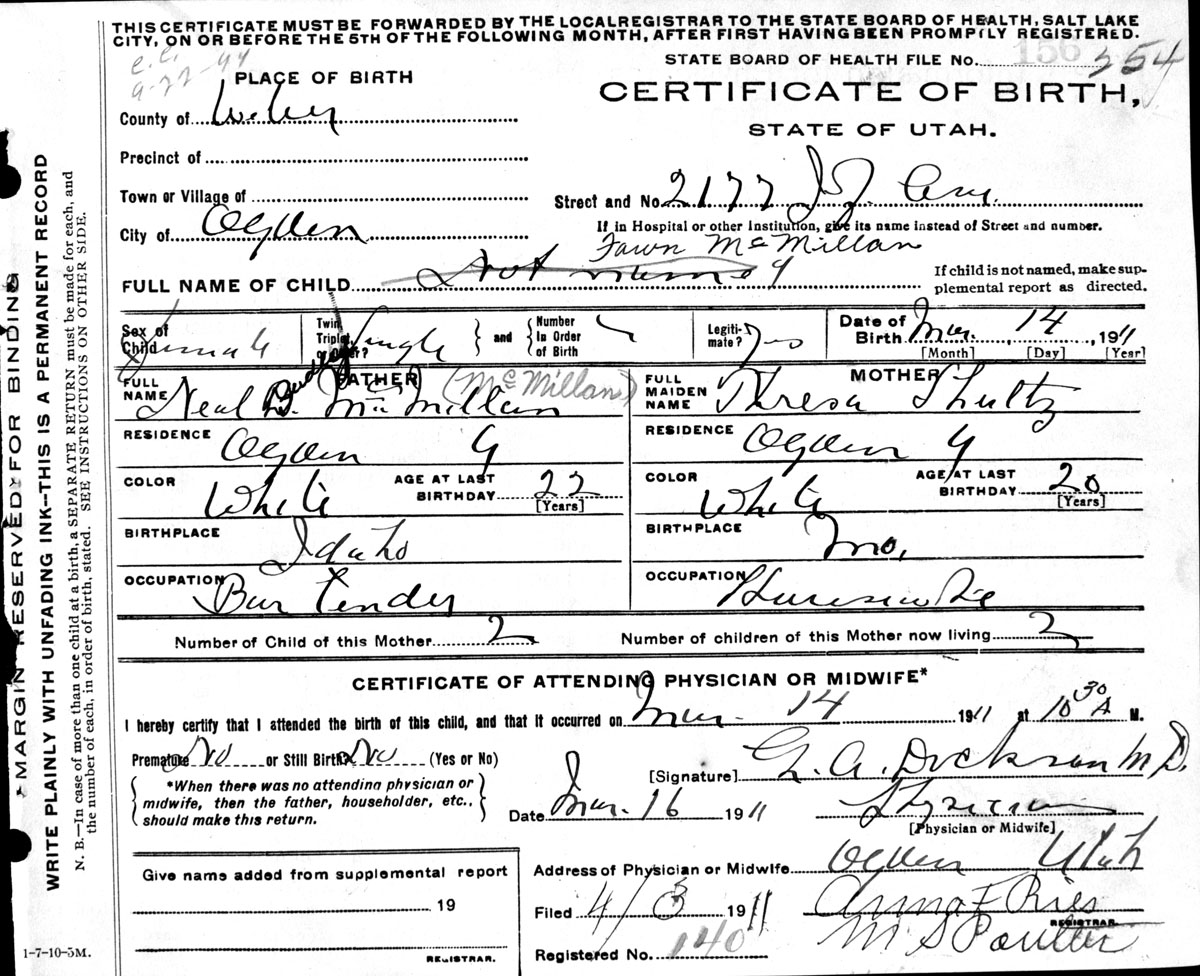 THIS CERTIFICATE MUST BE FORWARDED BY THE LOCAL REGISTRAR TO THE STATE BOARD OF HEALTH, SALT LAKE
CITY, ON OR BEFORE THE 5TH OF THE FOLLOWING MONTH, AFTER FIRST HAVING BEEN PROMPTLY REGISTERED.
STATE BOARD OF HEALTH FILE No. 156 354
C.C.
9-22-44
PLACE OF BIRTH
CERTIFICATE OF BIRTH,
STATE OF UTAH.
County of Weber
Precinct of
Town or Village of
Street and No. 2177
City of Ogden
If in Hospital or other Institution, give its name instead of Street and number.
Fawn McMillan
FULL NAME OF CHILD Not named
If child is not named, make sup-
plemental report as directed.
Sex of Child Female
Twin, Triplet, or Other? Single
and
Number In Order of Birth
Legiti-mate? Yes
Date of Birth Mar. 14, 1911
[Month] [Day] [Year]
FATHER
FULL NAME Neal D. MacMillan (McMillan)
MOTHER
FULL MAIDEN NAME Theresa Shultz
RESIDENCE Ogden
RESIDENCE Ogden
COLOR White
AGE AT LAST BIRTHDAY 22
[Years]
COLOR White
AGE AT LAST BIRTHDAY 20
[Years]
BIRTHPLACE Idaho
BIRTHPLACE Mo.
OCCUPATION Bar Tender
OCCUPATION Housewife
Number of Child of this Mother 2
Number of children of this Mother now living 2
CERTIFICATE OF ATTENDING PHYSICIAN OR MIDWIFE*
I hereby certify that I attended the birth of this child, and that it occurred on Mar. 14 1911 at 10 30 A M.
Premature No or Still Birth? No (Yes or No)
*When there was no attending physician or
midwife, then the father, householder, etc.,
should make this return.
[Signature] G. A. Dickson M.D.
Date Mar. 16 1911
Physician
[Physician or Midwife]
Give name added from supplemental report
19
REGISTRAR.
Address of Physician or Midwife Ogden Utah
Filed 4/3 1911
Anna F Ries
REGISTRAR
Registered No. 140
M S Poulter
1-7-10-5M.
MARGIN RESERVED FOR BINDING
WRITE PLAINLY WITH UNFADING INK—THIS IS A PERMANENT RECORD
N. B.—In case of more than one child at a birth, a SEPARATE RETURN must be made for each, and
the number of each, in order of birth, stated. SEE INSTRUCTIONS ON OTHER SIDE.